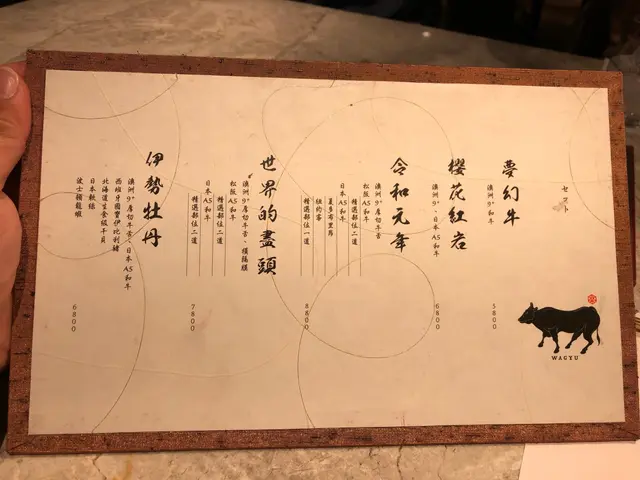 セット
夢幻牛
澳洲9+和牛
5800
櫻花紅岩
澳洲9+、日本A5和牛
6800
令和元年
澳洲9+厚切牛舌
松阪A5和牛
日本A5和牛
夏多布里昂
紐約客
精選部位一道
8800
世界的盡頭
澳洲9+厚切牛舌、橫隔膜
松阪A5和牛
精選部位二道
日本A5和牛
精選部位二道
7800
伊勢牡丹
澳洲9+厚切牛舌、日本A5和牛
西班牙國寶伊比利豬
北海道生食級干貝
日本軟絲
波士頓龍蝦
6800
WAGYU